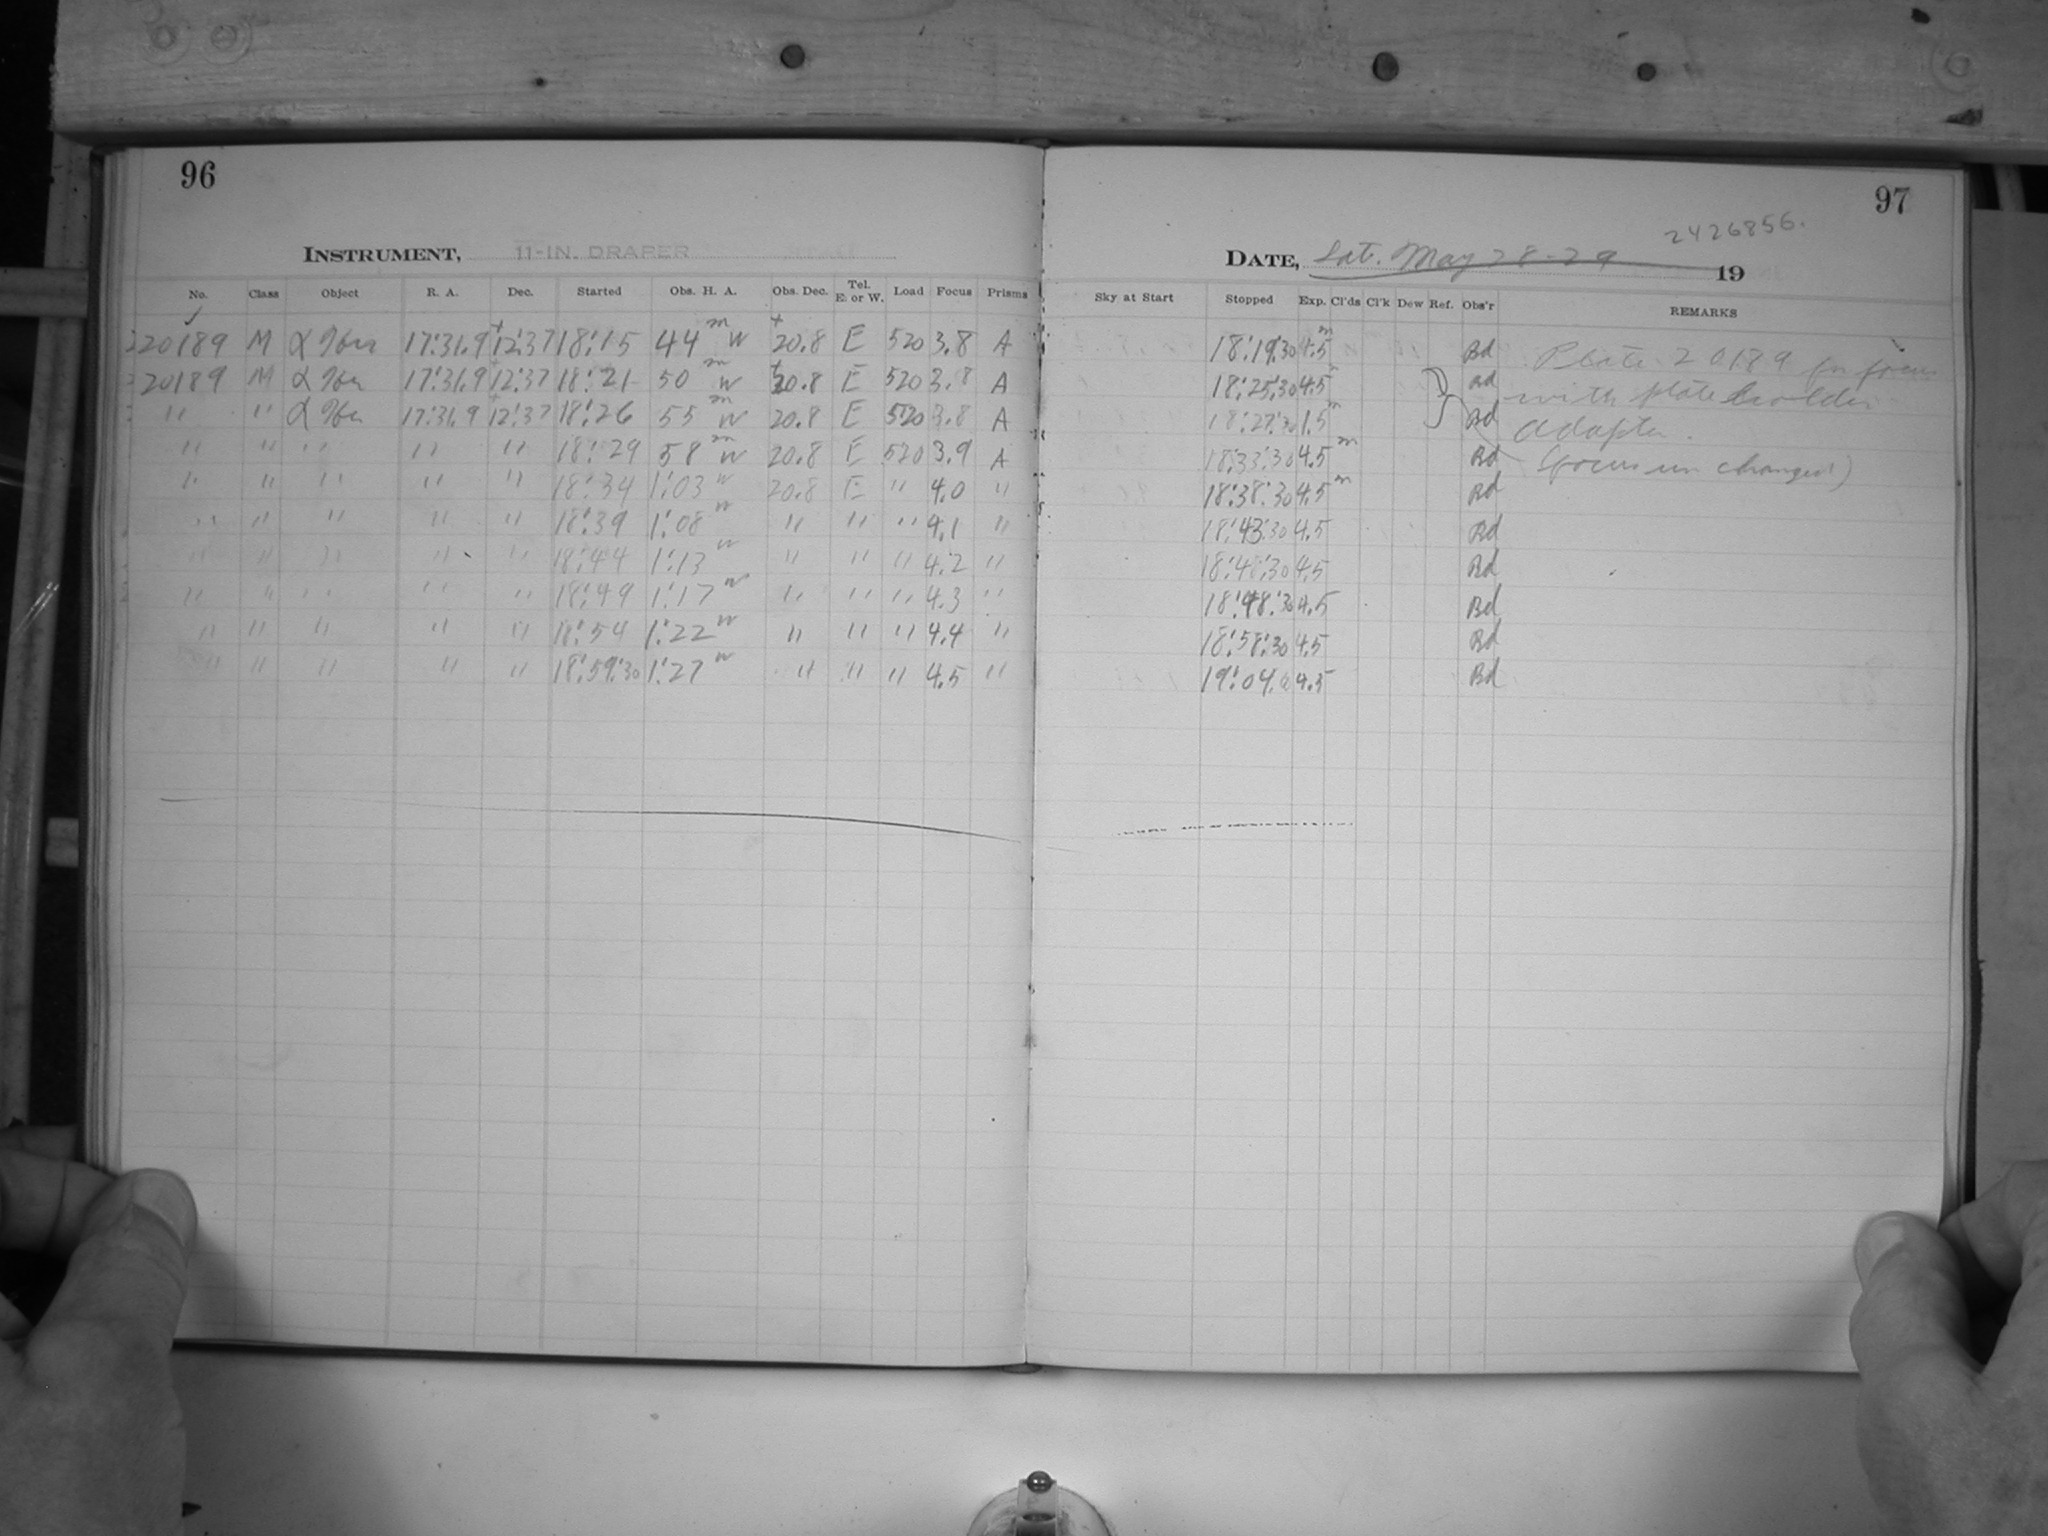 96
INSTRUMENT, 11-IN. DRAPER
No. Class Object R. A. Dec. Started Obs. H. A. Obs. Dec. Tel. E. or W. Load Focus Prisms
20189 M α 17:31.9 +12:37 18:15 44m W +20.8 E 520 3.8 A
20189 M α 17:31.9 +12:37 18:21 50m W +20.8 E 520 3.8 A
" " α 17:31.9 +12:37 18:26 55m W 20.8 E 520 3.8 A
" " " " " 18:29 58m W 20.8 E 520 3.9 A
" " " " " 18:34 1:03 W 20.8 E " 4.0 "
" " " " " 18:39 1:08 W " " " 4.1 "
" " " " " 18:44 1:13 W " " " 4.2 "
" " " " " 18:49 1:17 W " " " 4.3 "
" " " " " 18:54 1:22 W " " " 4.4 "
" " " " " 18:59:30 1:27 W " " " 4.5 "
97
2426856.
DATE, Sat. May 28-29 19
Sky at Start Stopped Exp. Cl'ds Cl'k Dew Ref. Obs'r REMARKS
18:19:30 4.5m Bd Plate 20189 for focus
18:25:30 4.5 Bd with plate holder
18:27:30 1.5m Bd adapter.
18:33:30 4.5m Bd (focus unchanged)
18:38:30 4.5m Bd
18:43:30 4.5 Bd
18:48:30 4.5 Bd
18:48:30 4.5 Bd
18:58:30 4.5 Bd
19:04 4.5 Bd